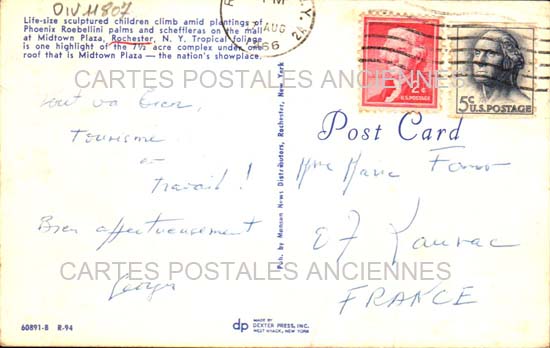 DIV 11807
Life-size sculptured children climb amid plantings of
Phoenix Roebellini palms and scheffleras on the mall
at Midtown Plaza, Rochester, N. Y. Tropical foliage
is one highlight of the 7½ acre complex under one
roof that is Midtown Plaza — the nation's showplace.
PM
AUG
N.Y.
2¢
U.S. POSTAGE
5¢
U.S. POSTAGE
CARTES POSTALES ANCIENNES
Tout va bien,
Tourisme
et
travail!
Bien affectueusement
Georges
Pub. by Manson News Distributors, Rochester, New York
Post Card
Mme Marie
07
FRANCE
CARTES POSTALES ANCIENNES
60891-B R-94
dp
MADE BY
DEXTER PRESS, INC.
WEST NYACK, NEW YORK